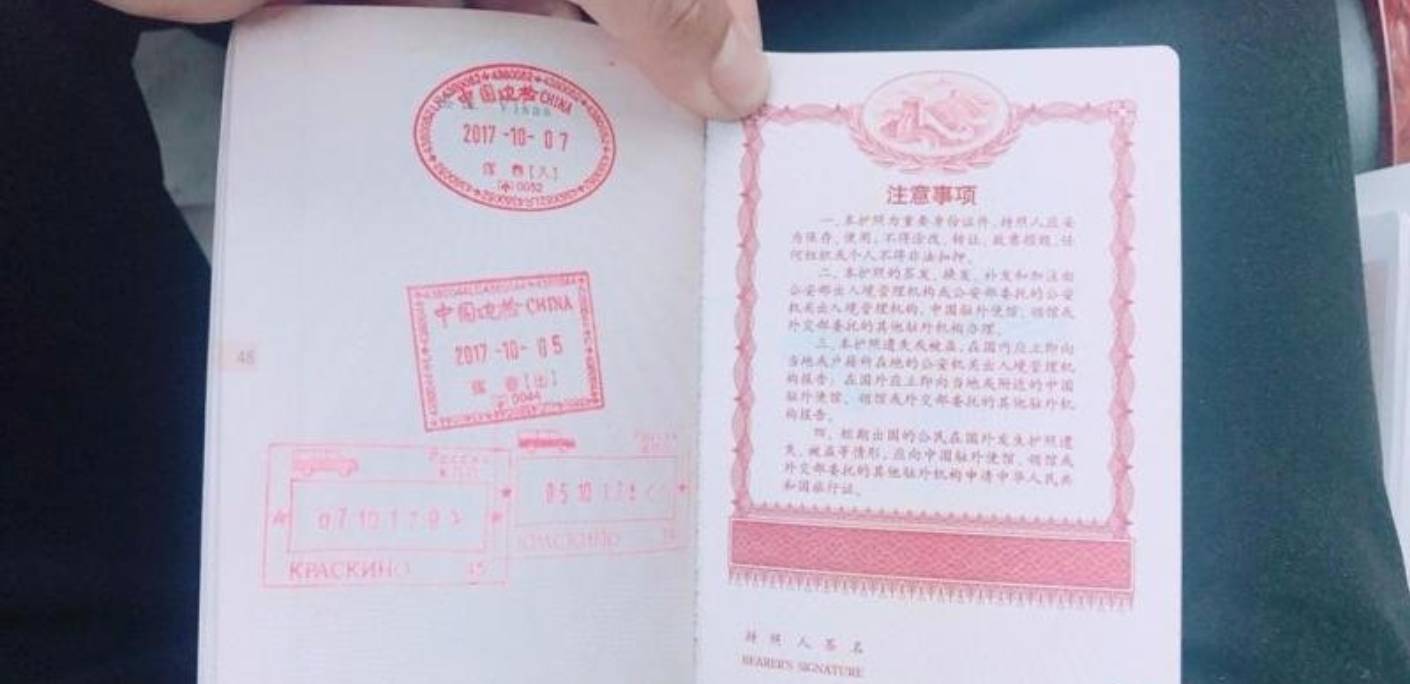 中国边检 CHINA
2017-10-07
珲春[入]
0052
48
中国边检 CHINA
2017-10-05
珲春[出]
0044
Россия
07 10 17
КРАСКИНО
05 10 17
КРАСКИНО
注意事项
一、本护照为重要身份证件,持照人应妥
为保存、使用,不得涂改、转让、故意损毁。任
何组织或个人不得非法扣押。
二、本护照的签发、换发、补发和加注由
公安部出入境管理机构或公安部委托的公安
机关出入境管理机构、中国驻外使馆、领馆或
外交部委托的其他驻外机构办理。
三、本护照遗失或被盗,在国内应立即向
当地或户籍所在地的公安机关出入境管理机
构报告;在国外应立即向当地或附近的中国
驻外使馆、领馆或外交部委托的其他驻外机
构报告。
四、短期出国的公民在国外发生护照遗
失、被盗等情形,应向中国驻外使馆、领馆或
外交部委托的其他驻外机构申请中华人民共
和国旅行证。
持照人签名
BEARER'S SIGNATURE